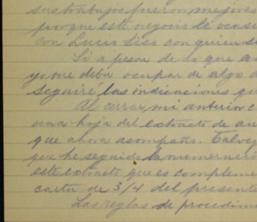 sus trabajos fueron mejores
porque este negocio de ocasi
con Lucio Sisi con quien s
Si a pesar de lo que a
yo me debo ocupar de algo d
Seguiré las indicaciones qu
Al cerrar mi anterior c
una hoja del extracto de an
que ahora acompaño. Talvez
que he seguido la numeració
este extracto que es compleme
carta de 3/4 del presente
Las reglas de procedim